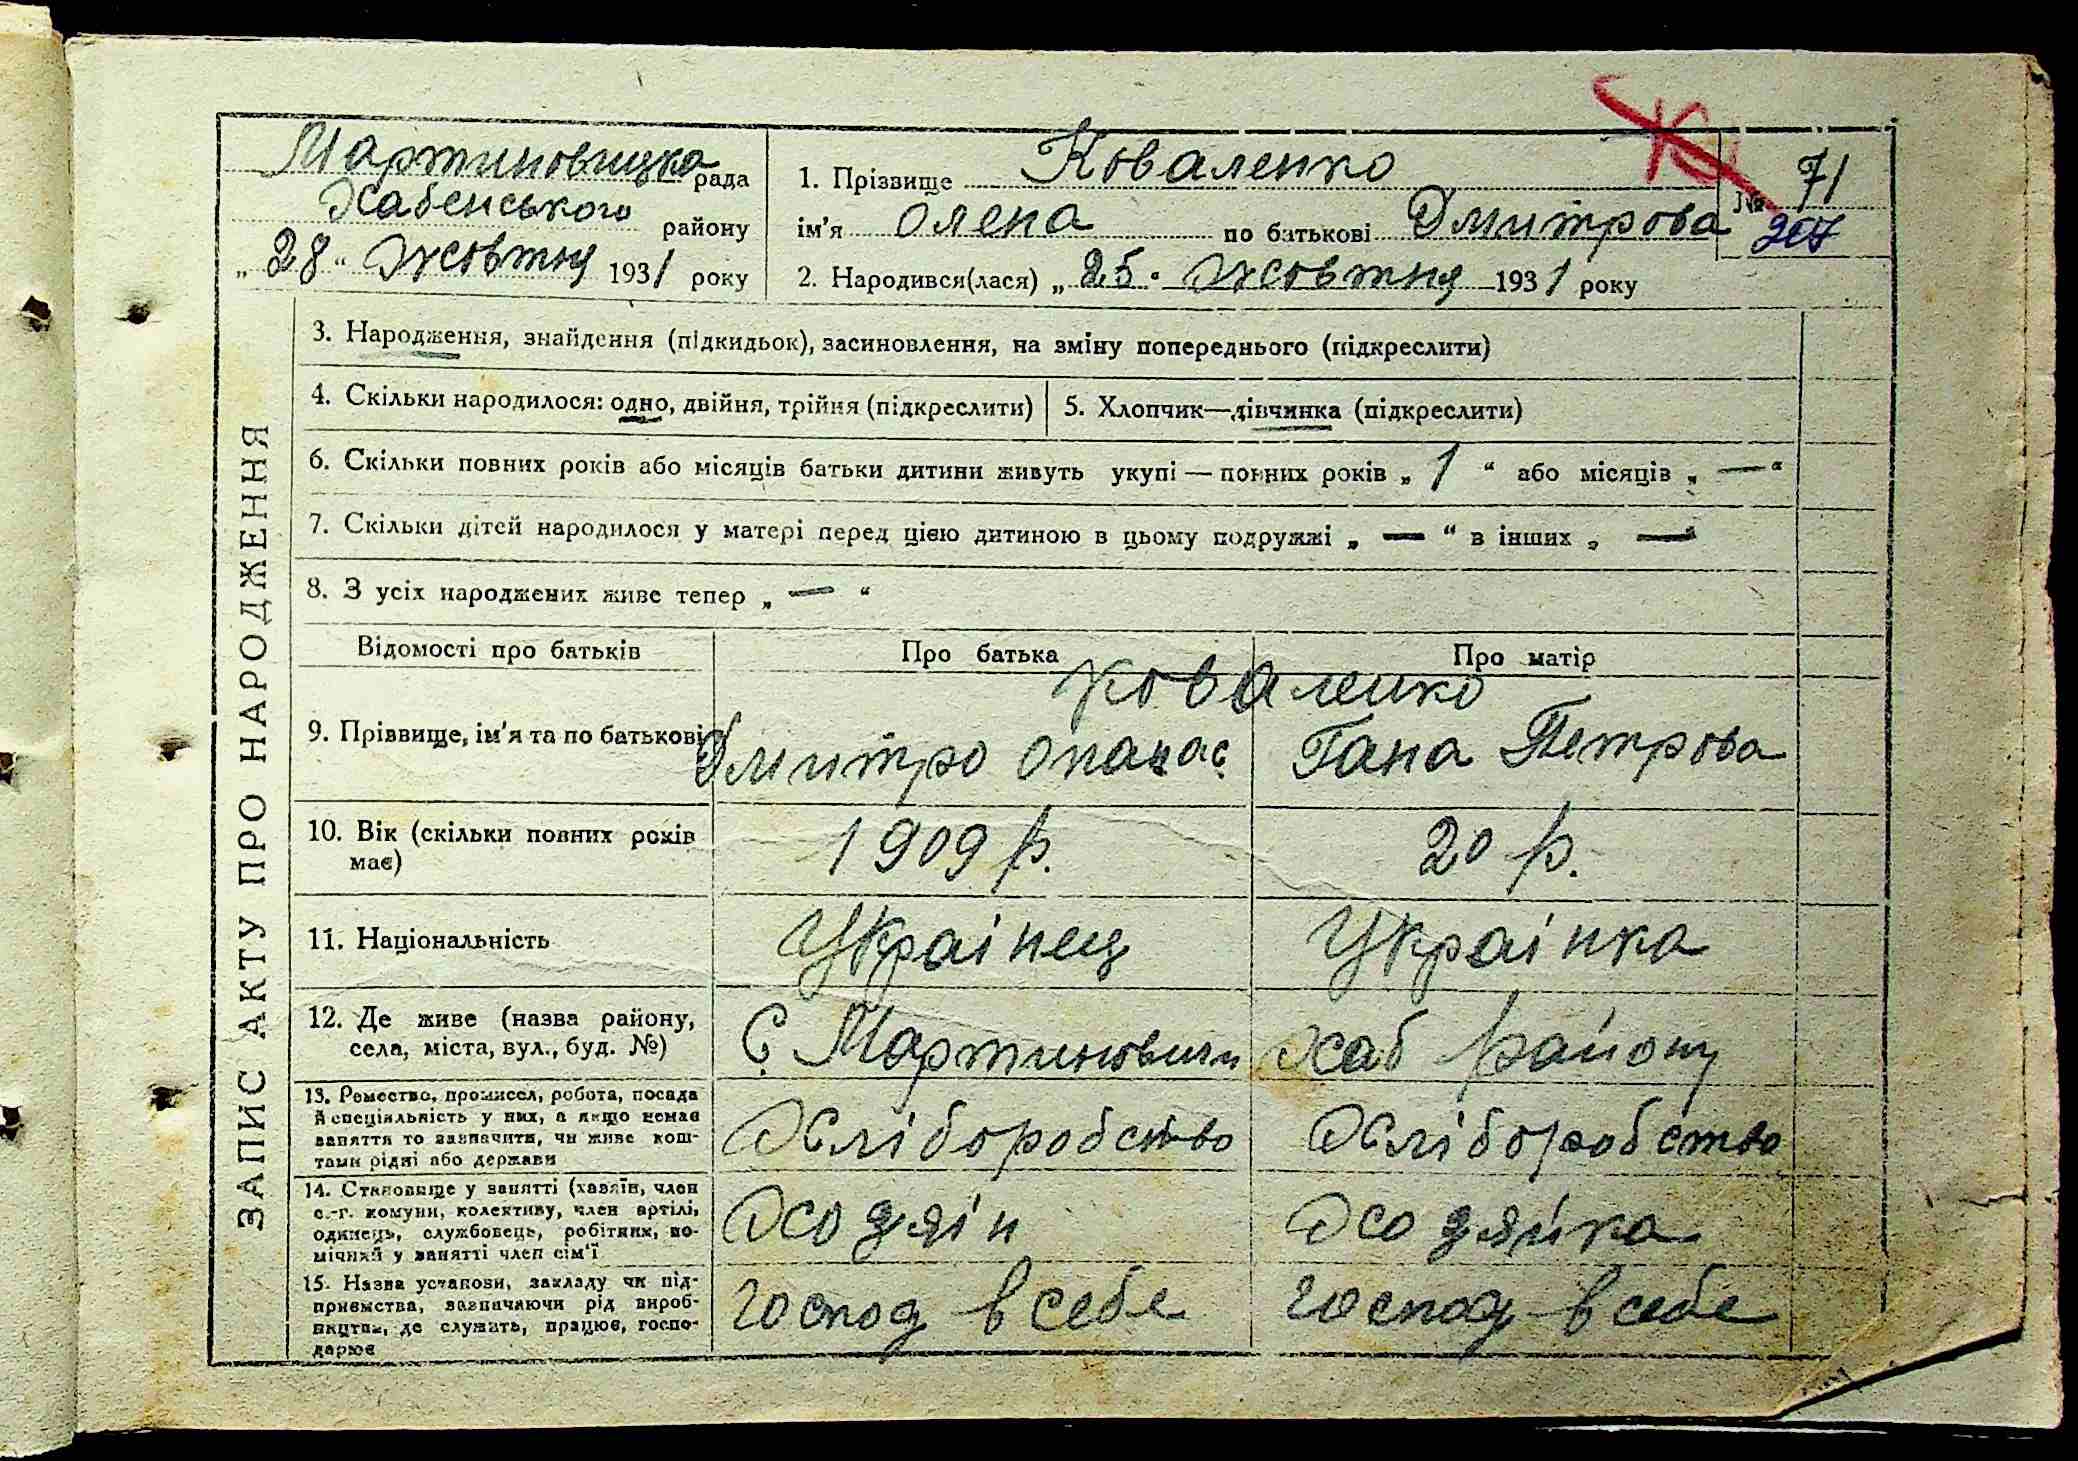 Мартиновицка рада
Хабенського району
„28“ Жовтня 1931 року
1. Прізвище Коваленко
№ 71
207
ім'я Олена по батькові Дмитрова
2. Народився(лася) „25“ Жовтня 1931 року
ЗАПИС АКТУ ПРО НАРОДЖЕННЯ
3. Народження, знайдення (підкидьок), засиновлення, на зміну попереднього (підкреслити)
4. Скільки народилося: одно, двійня, трійня (підкреслити)
5. Хлопчик—дівчинка (підкреслити)
6. Скільки повних років або місяців батьки дитини живуть укупі — повних років „1“ або місяців „—“
7. Скільки дітей народилося у матері перед цією дитиною в цьому подружжі „—“ в інших „—“
8. З усіх народжених живе тепер „—“
Відомості про батьків
Про батька
Про матір
Коваленко
9. Прізвище, ім'я та по батькові
Дмитро Опанас.
Гана Петрова
10. Вік (скільки повних років
має)
1909 р.
20 р.
11. Національність
Украінец
Украінка
12. Де живе (назва району,
села, міста, вул., буд. №)
С. Мартиновичи
Хаб району
13. Ремество, промисел, робота, посада
й спеціяльність у них, а якщо немає
заняття то зазначити, чи живе кош-
тами рідні або держави
Хліборобство
Хліборобство
14. Становище у занятті (хазяїн, член
с.-г. комуни, колективу, член артілі,
одинець, службовець, робітник, по-
мічний у занятті член сім'ї
Хозяін
Хозяйка
15. Назва установи, закладу чи під-
приємства, зазначаючи рід вироб-
ництва, де служить, працює, госпо-
дарює
Господ в себе
Господ в себе